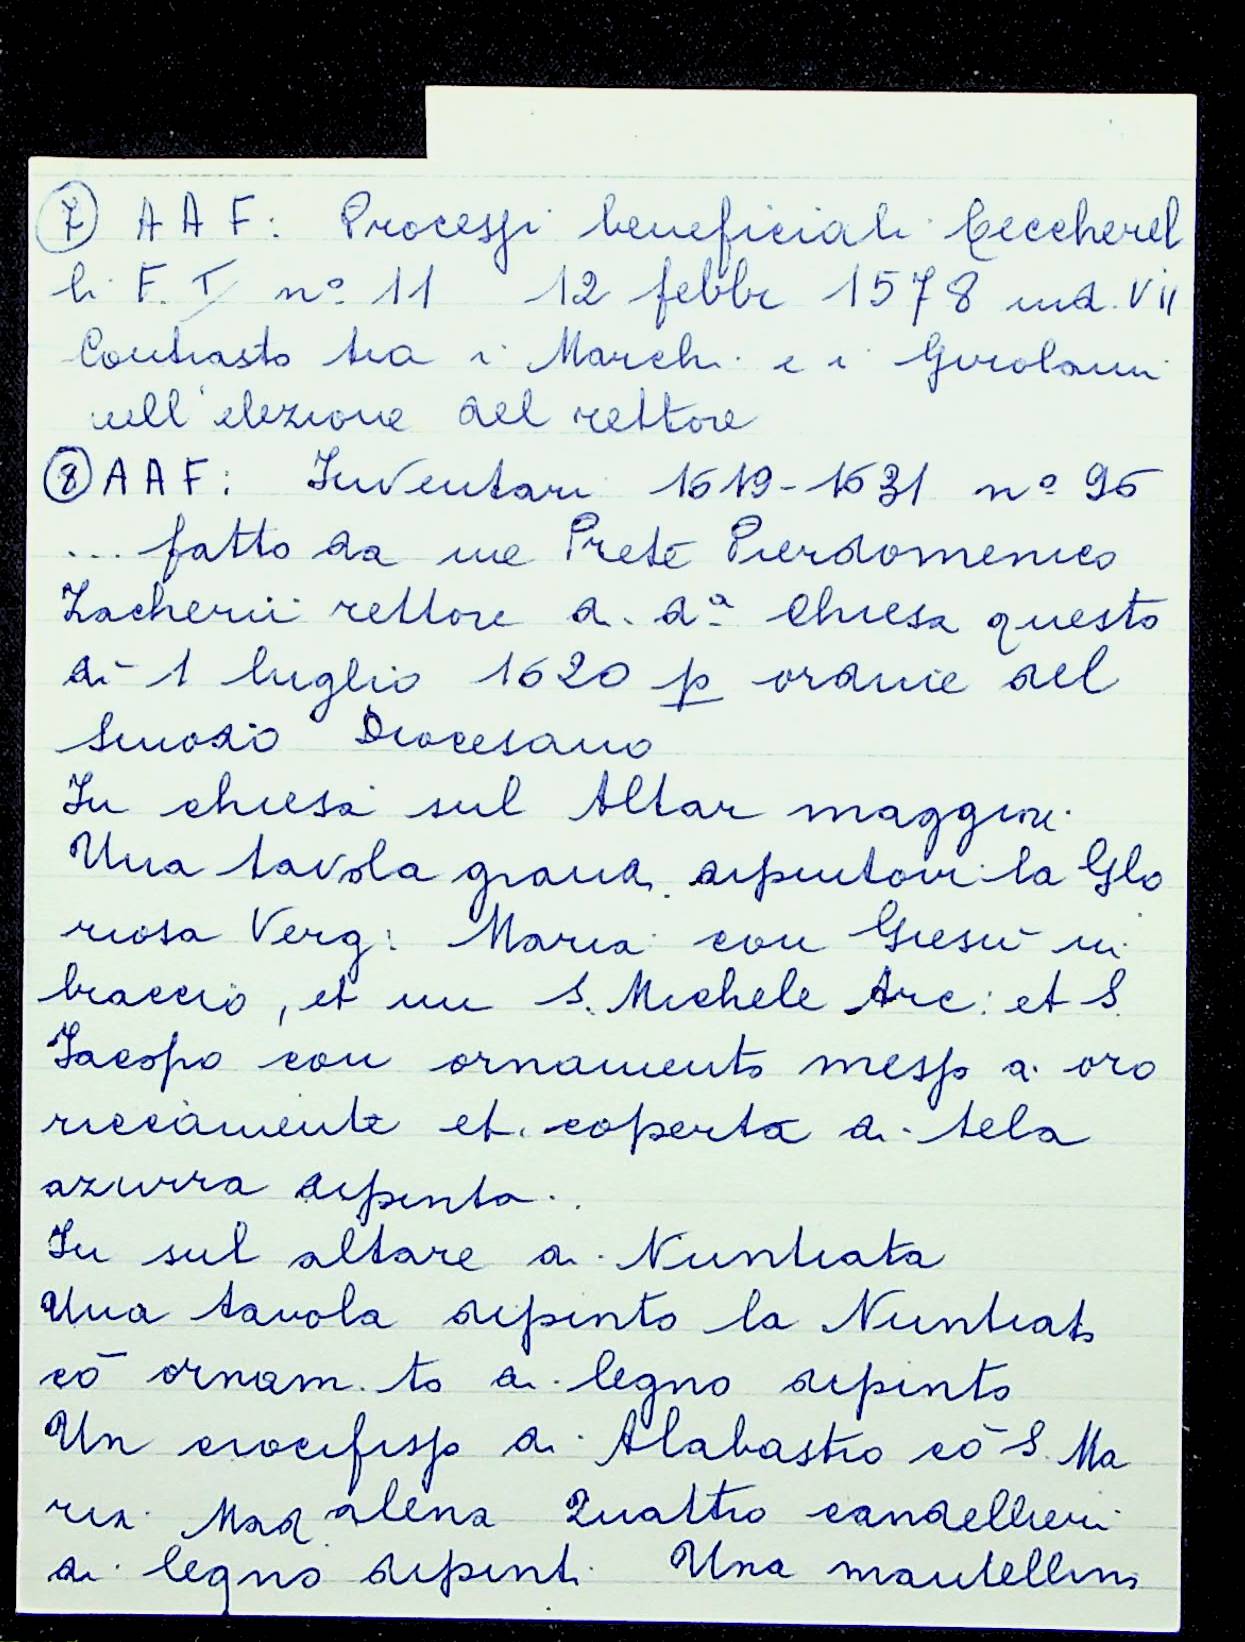 7 AAF: Processi beneficiali Ceccherel
li F. I nº 11 12 febbr 1578 ind. VII
Contrasto tra i Marchi e i Girolami
nell'elezione del rettore
8 AAF: Inventari 1619-1631 nº 96
... fatto da me Prete Pierdomenico
Zacherii rettore di dª Chiesa questo
dì 1 luglio 1620 p ordine del
Sinodo Diocesano
In chiesa sul Altar maggiore
Una tavola grande dipintovi la Glo
riosa Verg: Maria con Giesù in
braccio, et un S. Michele Arc: et S.
Jacopo con ornamento messo a oro
riccamente et coperta di tela
azurra dipinta.
In sul altare di Nuntiata
Una tavola dipinto la Nuntiata
cō ornam.to di legno dipinto
Un crocifisso di Alabastro cō S. Ma
ria Madalena Quattro candellieri
di legno dipinti Una mantellina